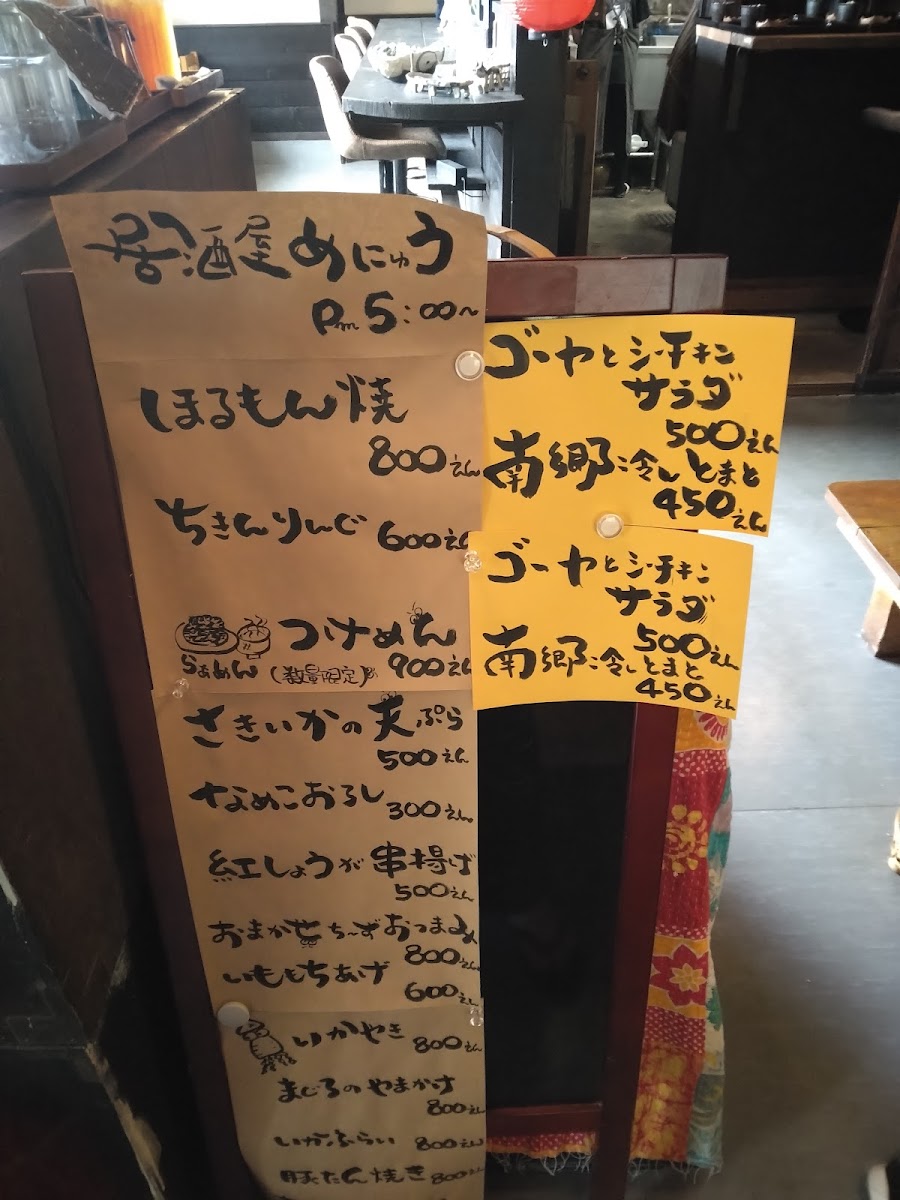 居酒屋 めにゅう
Pm 5:00〜
ほるもん焼
800えん
ちきんりんぐ 600えん
つけめん
らぁめん (数量限定) 900えん
さきいかの天ぷら
500えん
なめこおろし
300えん
紅しょうが串揚げ
500えん
おまかせち〜ずおつまみ
800えん
いももちあげ
600えん
いかやき 800えん
まぐろのやまかけ
800えん
いかふらい 800えん
豚たん焼き 800えん
ゴーヤとシーチキン
サラダ
500えん
南郷冷しとまと
450えん
ゴーヤとシーチキン
サラダ
500えん
南郷冷しとまと
450えん